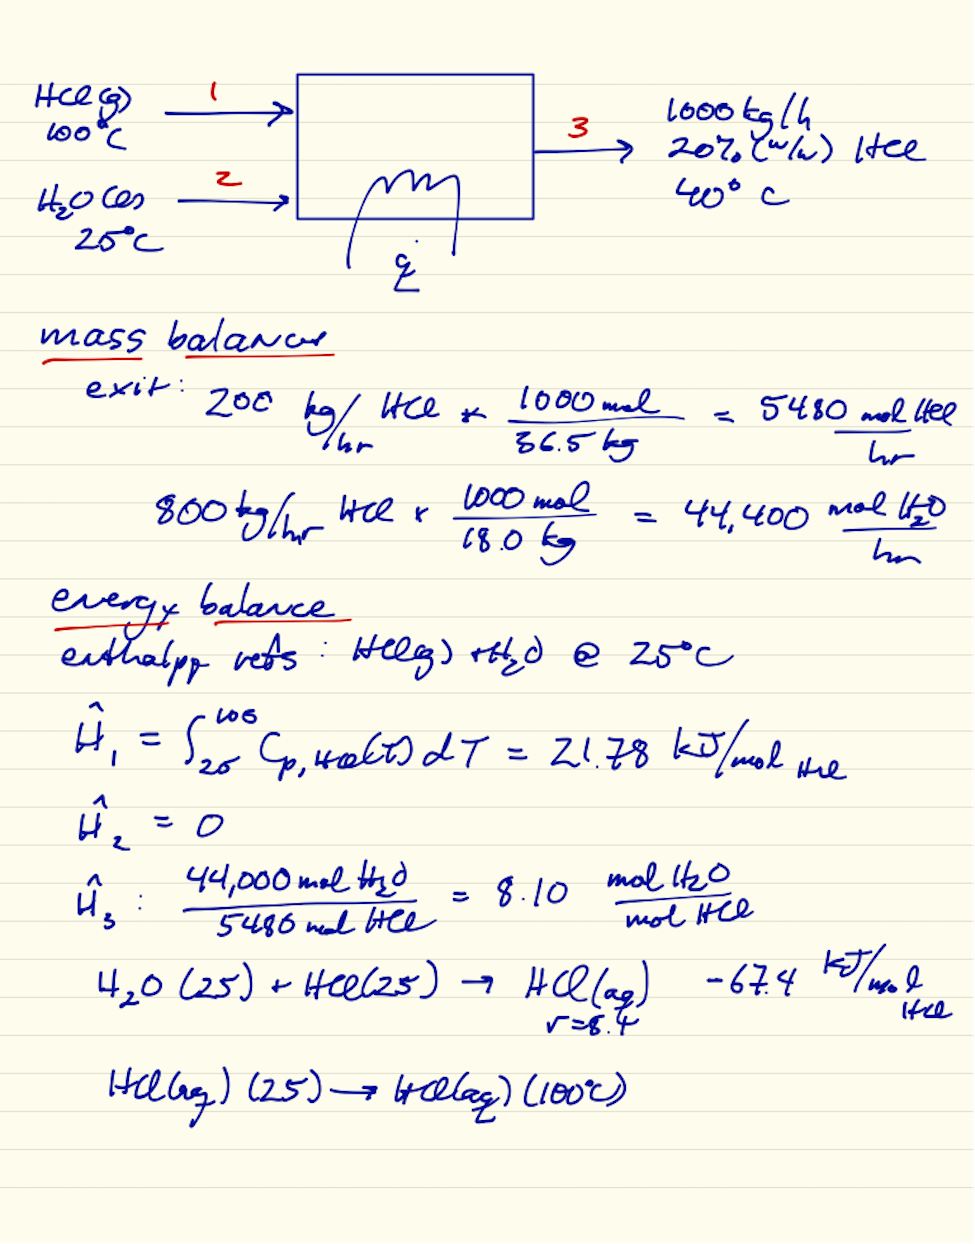 HCl(g) 1 1000 kg/h
100°C 3 20% (w/w) HCl
H₂O(l) 2 40° C
25°C
q̇
mass balances
exit: 200 kg/hr HCl * 1000 mol / 36.5 kg = 5480 mol HCl / hr
800 kg/hr HCl * 1000 mol / 18.0 kg = 44,400 mol H₂O / hr
energy balance
enthalpy refs: HCl(g) + H₂O @ 25°C
Ĥ₁ = ∫₂₅¹⁰⁰ Cp, HCl(T) dT = 21.78 kJ/mol HCl
Ĥ₂ = 0
Ĥ₃ : 44,000 mol H₂O / 5480 mol HCl = 8.10 mol H₂O / mol HCl
H₂O (25) + HCl(25) → HCl(aq) -67.4 kJ/mol HCl
r=8.4
HCl(aq) (25) → HCl(aq) (100°C)